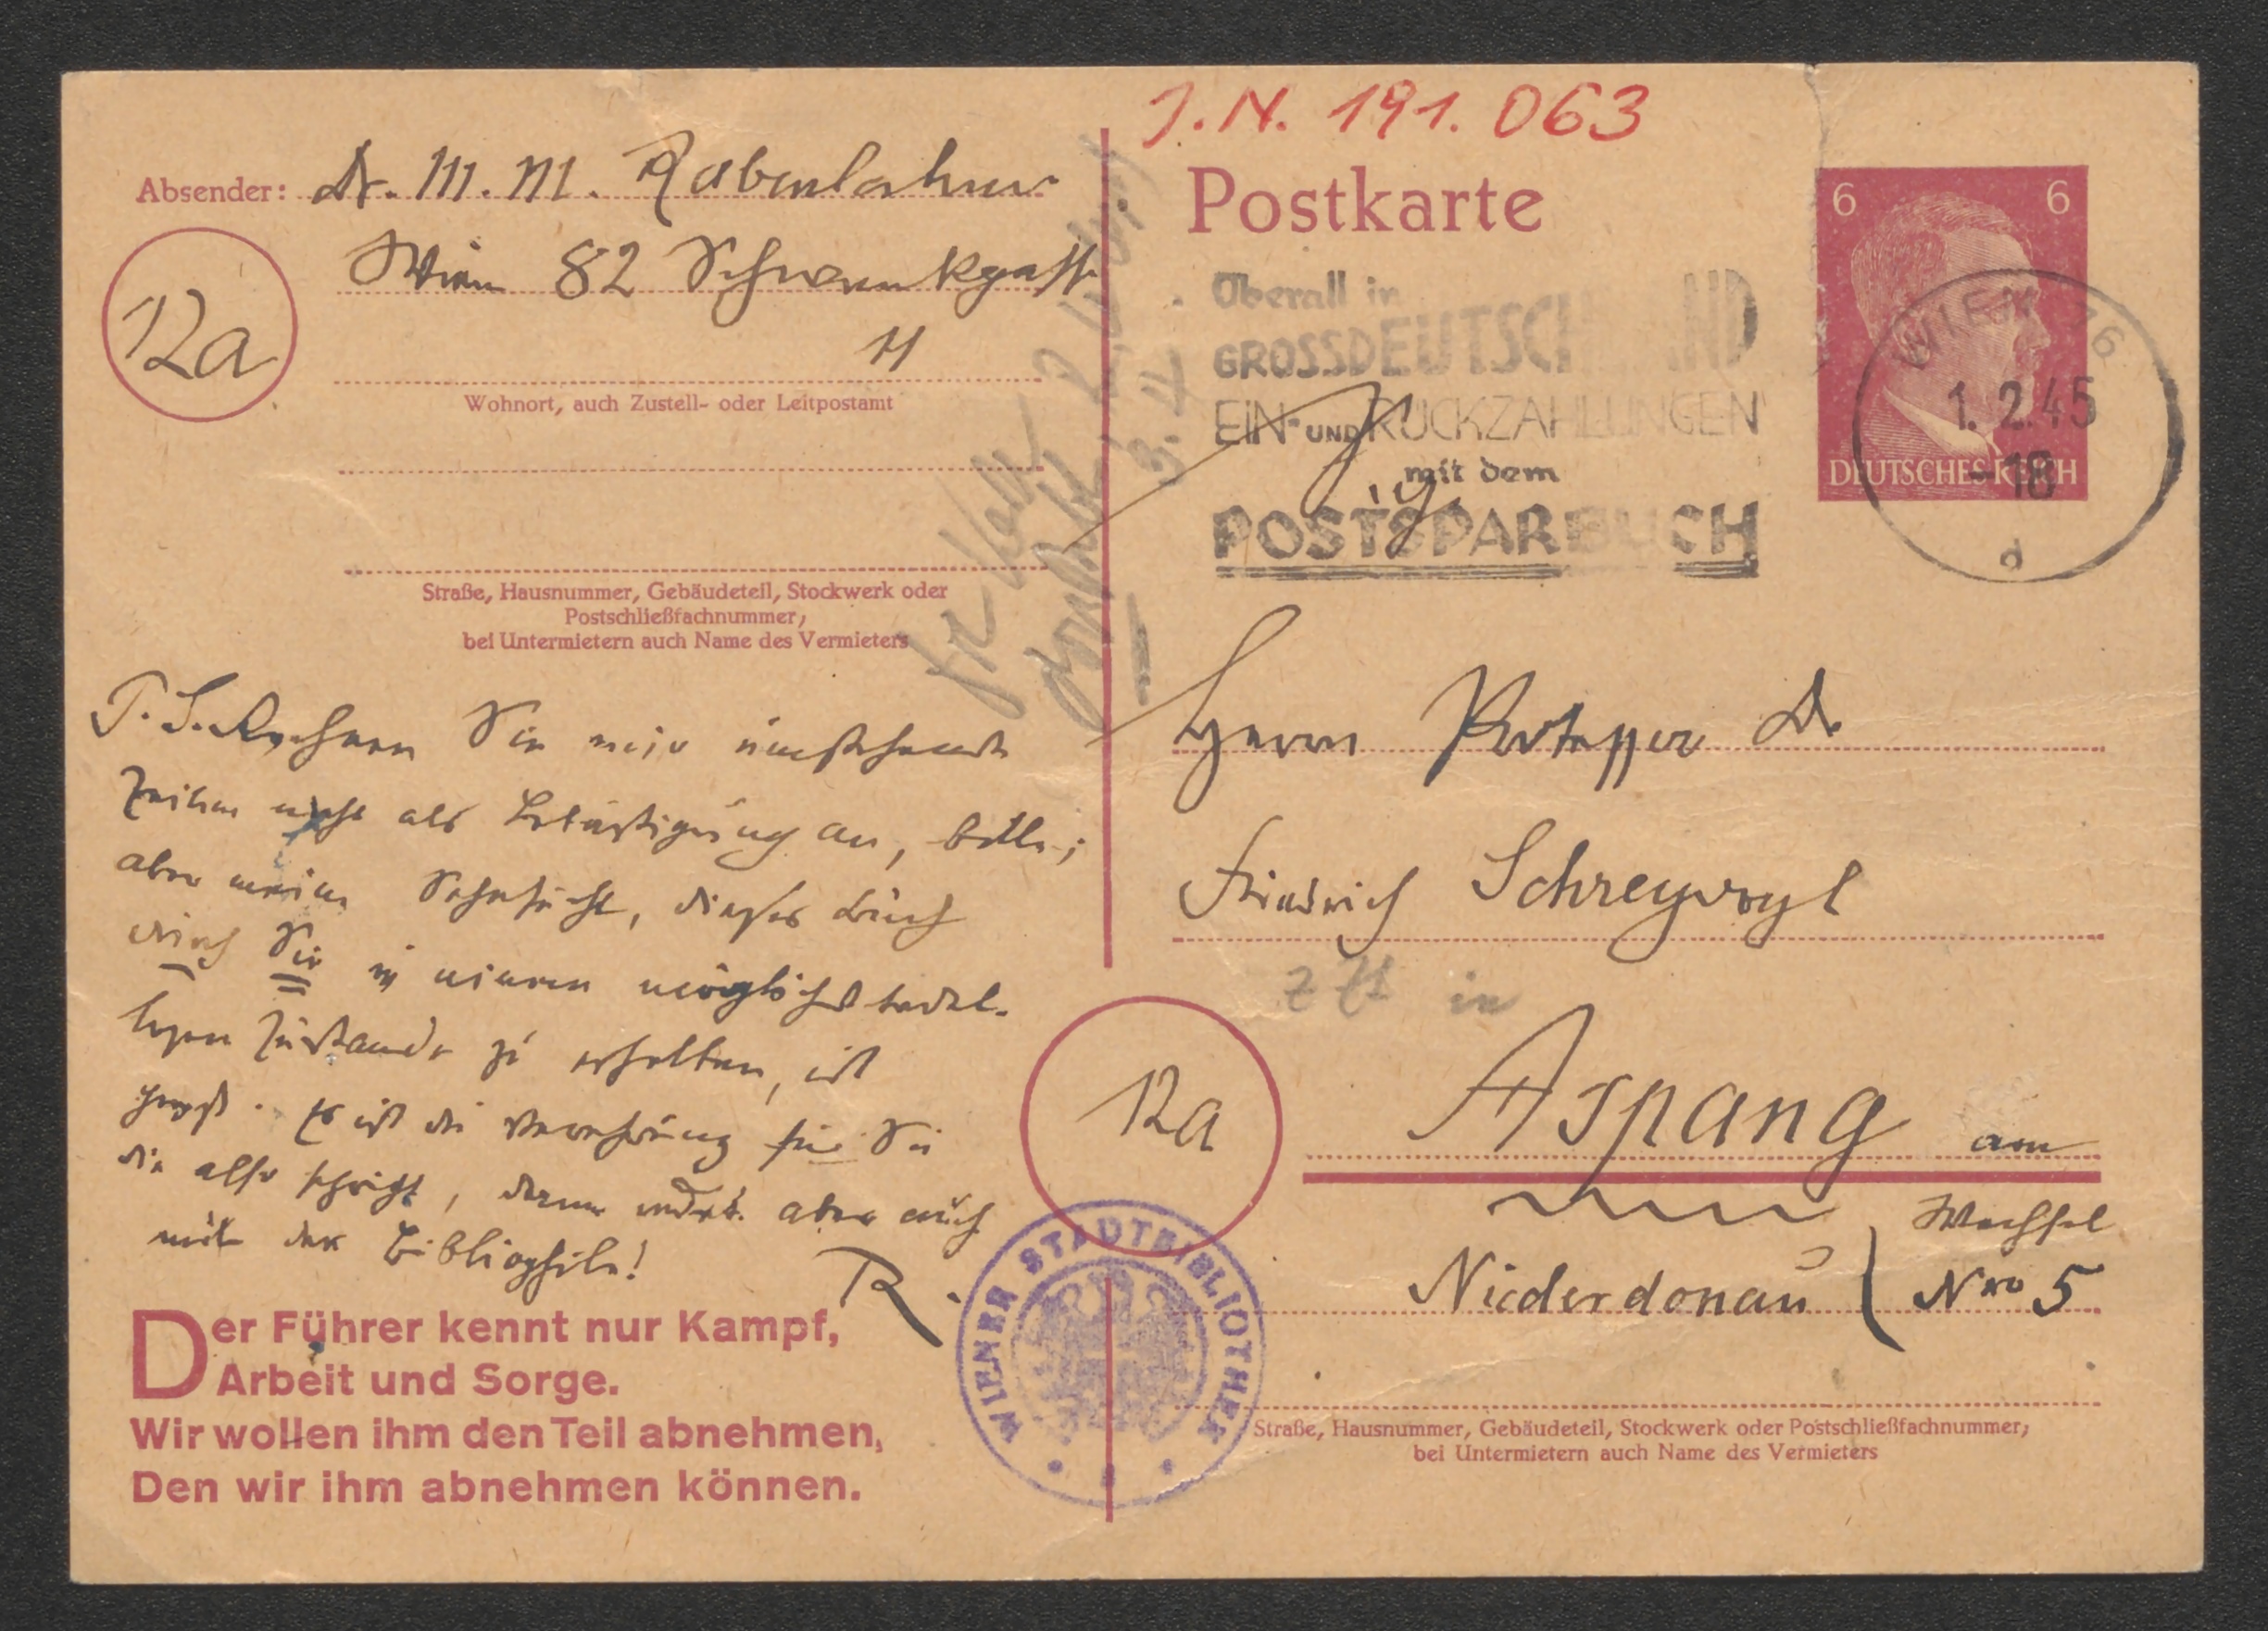 J.N. 191.063
Absender: Dr. M. M. Rabenlechner
Wien 82 Schwenkgasse
11
12a
Wohnort, auch Zustell- oder Leitpostamt
Straße, Hausnummer, Gebäudeteil, Stockwerk oder
Postschließfachnummer,
bei Untermietern auch Name des Vermieters
P. S. Rechnen Sie mir umstehende
Zeilen nicht als Belästigung an, bitte;
aber meine Sehnsucht, dieses Buch
durch Sie in einem möglichst tadel-
losen Zustande zu erhalten, ist
groß. Es ist die Verehrung für Sie
die also spricht, dann aber auch
mit der Bibliophile!
R.
Der Führer kennt nur Kampf,
Arbeit und Sorge.
Wir wollen ihm den Teil abnehmen,
Den wir ihm abnehmen können.
Postkarte
6 6
DEUTSCHES REICH
WIEN 76
1. 2. 45
-18
d
Überall in
GROSSDEUTSCHLAND
EIN- UND RÜCKZAHLUNGEN
mit dem
POSTSPARBUCH
Herrn Professor Dr
Friedrich Schreyvogl
z Zt in
12a
Aspang am
Wechsel
Niederdonau Nro 5
Straße, Hausnummer, Gebäudeteil, Stockwerk oder Postschließfachnummer;
bei Untermietern auch Name des Vermieters
WIENER STADTBIBLIOTHEK